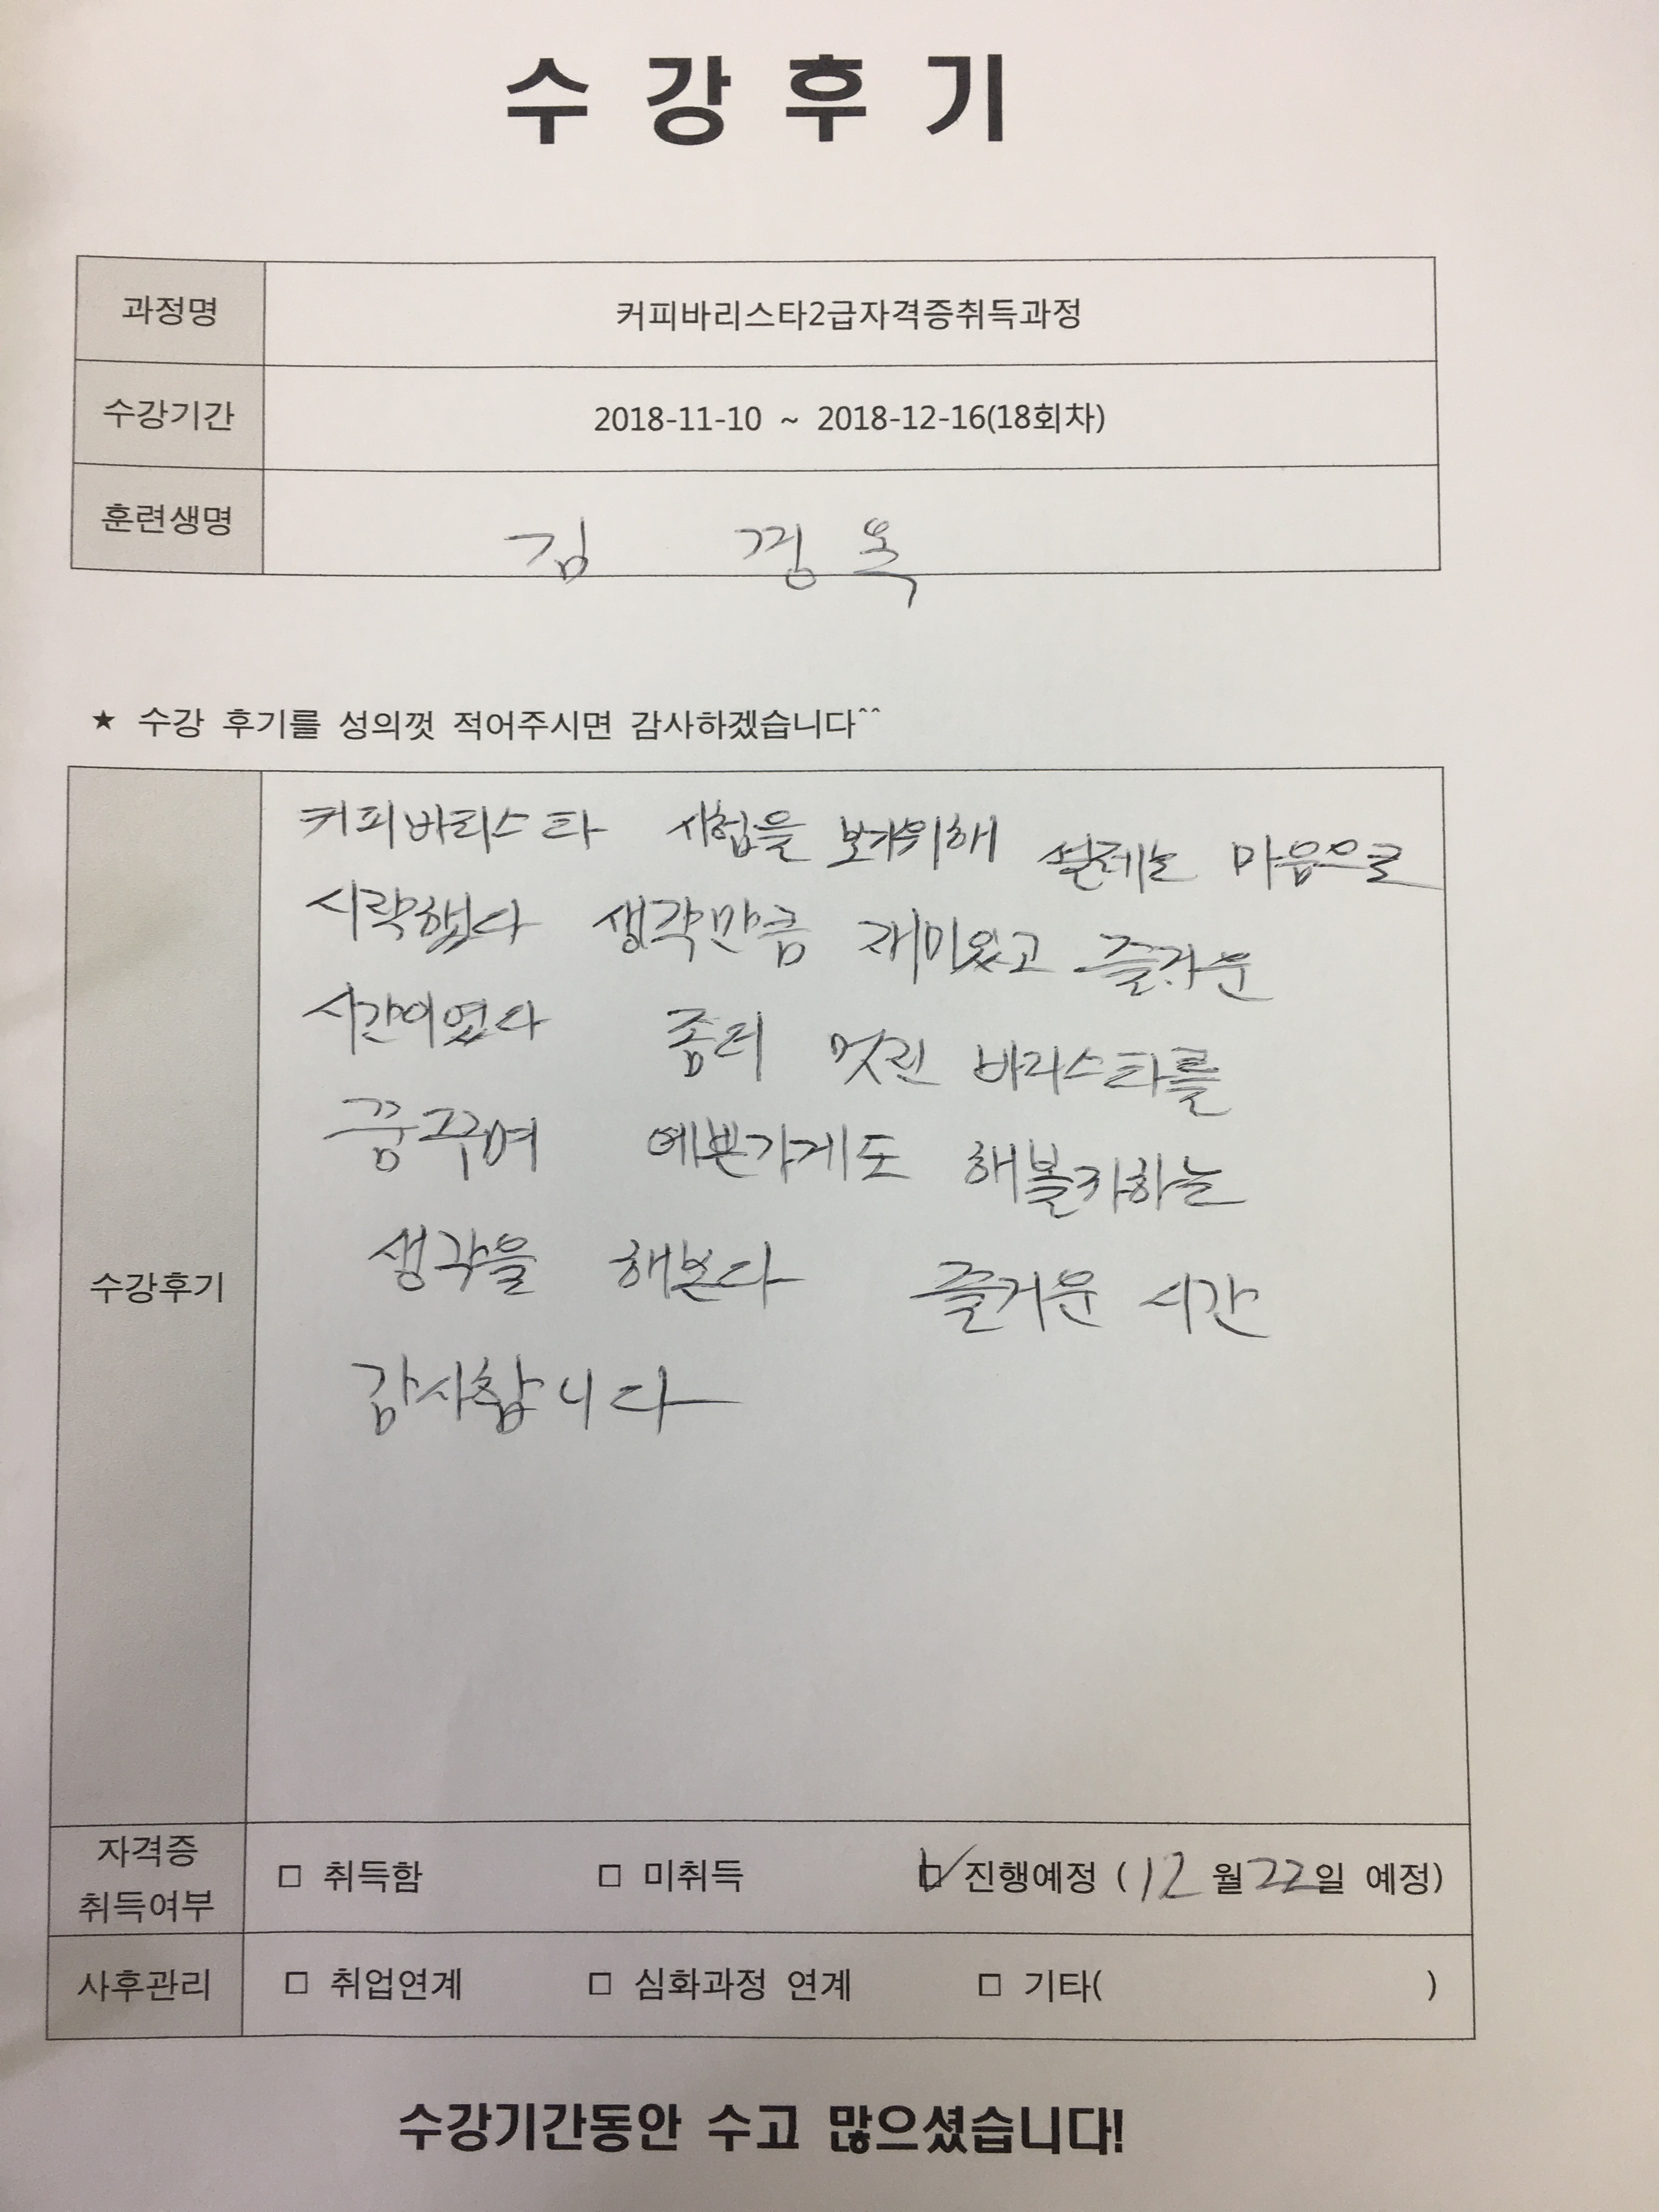 수강후기
과정명 커피바리스타2급자격증취득과정
수강기간 2018-11-10 ~ 2018-12-16(18회차)
훈련생명 김 경옥
★ 수강 후기를 성의껏 적어주시면 감사하겠습니다^^
커피바리스타 시험을 보기위해 설레는 마음으로
시작했다 생각만큼 재미있고 즐거운
시간이였다 좀더 멋진 바리스타를
꿈꾸며 예쁜가게도 해볼까하는
생각을 해본다 즐거운 시간
감사합니다
수강후기
자격증
취득여부
□ 취득함 □ 미취득 ☑ 진행예정 (12월22일 예정)
사후관리 □ 취업연계 □ 심화과정 연계 □ 기타( )
수강기간동안 수고 많으셨습니다!